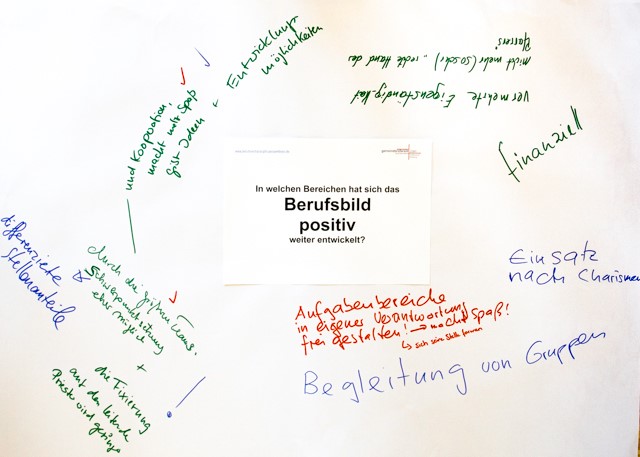 In welchen Bereichen hat sich das
Berufsbild
positiv
weiter entwickelt?
Entwicklungs
möglichkeiten
und Kooperation,
macht mehr Spaß
gibt Ideen
vermehrte Eigenständigkeit
nicht mehr (so sehr) „rechte Hand des
Pfarrers"
finanziell
Einsatz
nach Charismen
Aufgabenbereiche
in eigener Verantwortung
frei gestalten! → macht Spaß!
↳ sich seine Stelle formen
Begleitung von Gruppen
differenzierte
Stellenanteile
durch die größeren Teams.
Schwerpunktsetzung
eher möglich
+
die Fixierung
auf den leitende
Priester wird geringer
!